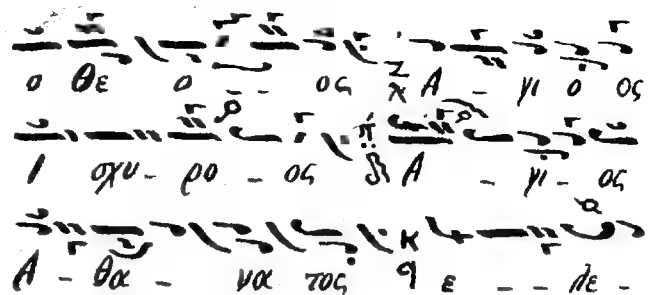 ο θε ο - - ος Α - γι ο ος
Ι σχυ - ρο - ος Α - γι - ος
Α - θα - να τος ε - - λε -